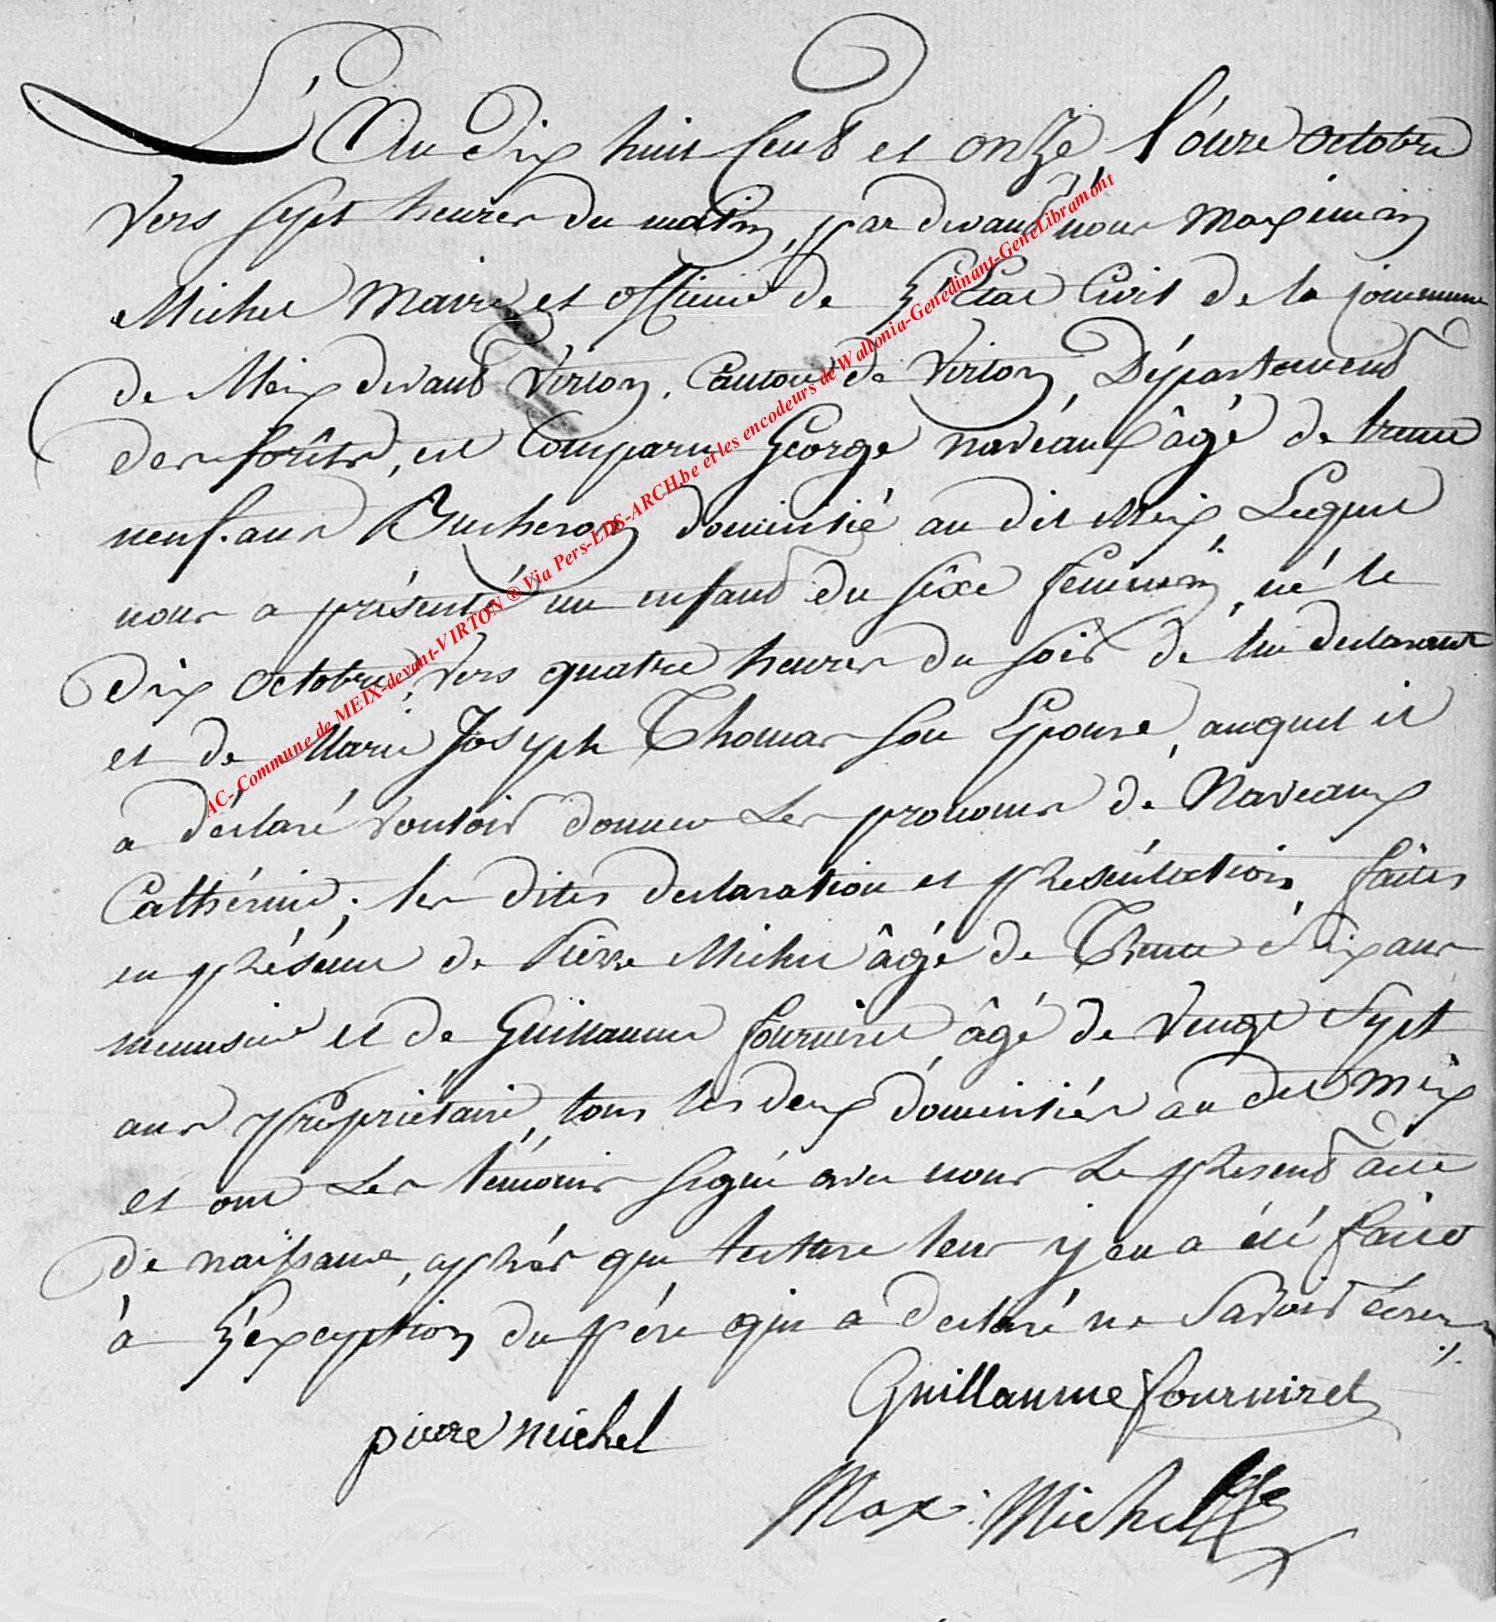 L'An dix huit Cent et onze, l'onze Octobre
vers sept heures du matin, par devant nous Maximin
Michel Maire et officier de L'Etat Civil de la commune
de Meix devant Virton, Canton de Virton, Département
des forêts, est Comparu George Naveaux âgé de trente
neuf ans Bucheron domicilié au dit Meix, Lequel
nous a présenté un enfant du sèxe feminin, né le
dix Octobre, vers quatre heures du soir de lui declarant
et de Marie Joseph Thomas son Epouse, auquel il
a déclaré vouloir donner les prenoms de Naveaux
Cathérine; les dites declaration et présentation faites
en présence de Pierre Michel âgé de Trente Six ans
menusier et de Guillaume fourniret âgé de vingt Sept
ans propriétaire, tous les deux domiciliés au dit Meix
et ont les témoins signé avec nous le present acte
de naissance, après que lecture leur y en a été faite
à L'exception du père qui a declaré ne Savoir Ecrire ./.
Guillaume fourniret
pierre michel
Max: Michel
AC- Commune de MEIX-devant-VIRTON ® Via Pers-LDS-ARCH.be et les encodeurs de Wallonia-Genedinant-GeneLibramont